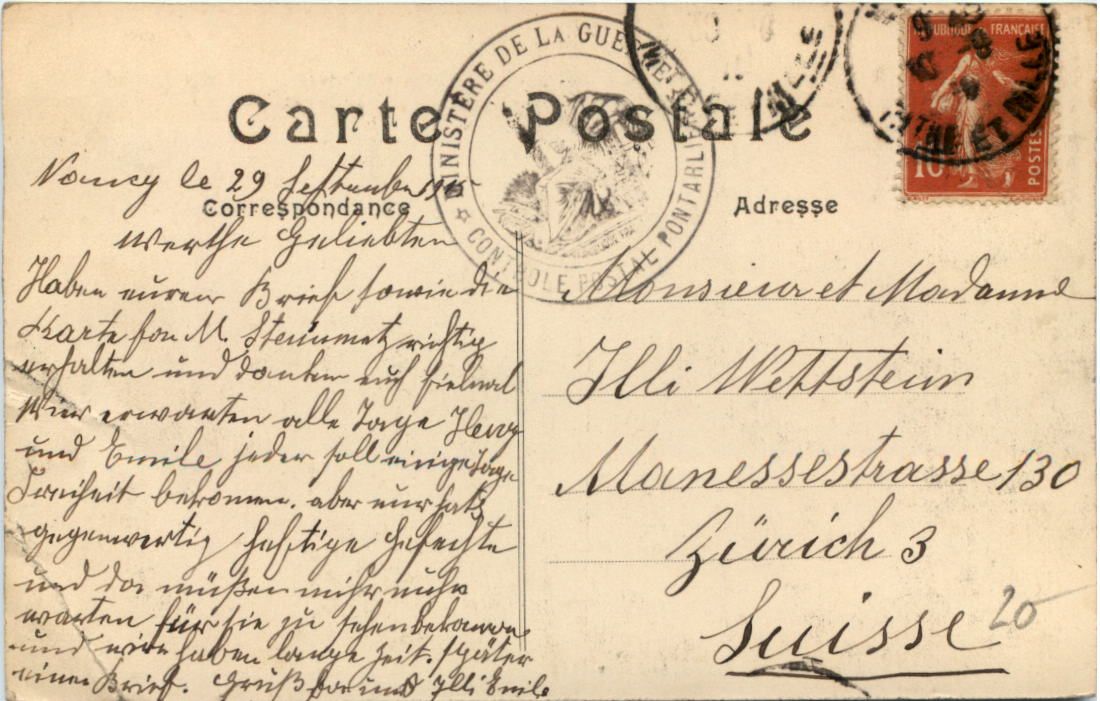 Carte Postale
MINISTÈRE DE LA GUERRE
CONTROLE POSTAL PONTARLIER
RÉPUBLIQUE FRANÇAISE
10
POSTES
MRTHE ET MLLE
Correspondance
Adresse
Nancy le 29 Septembre 1915
Werthe Geliebten
Haben euren Brief sowie die
Karte fon M. Steinmetz richtig
erhalten und danken euch fielmal
Wir erwarten alle Tage
und Emile jeder soll einige Tage
Freiheit bekomen. aber
gegenwertig heftige Gefechte
und da müßen
warten für sie zu sehen bekomen
und wir haben lange Zeit. später
einen Brief. Gruß Illi Emile
Monsieur et Madame
Illi Wettstein
Manessestrasse 130
Zürich 3
Suisse
20